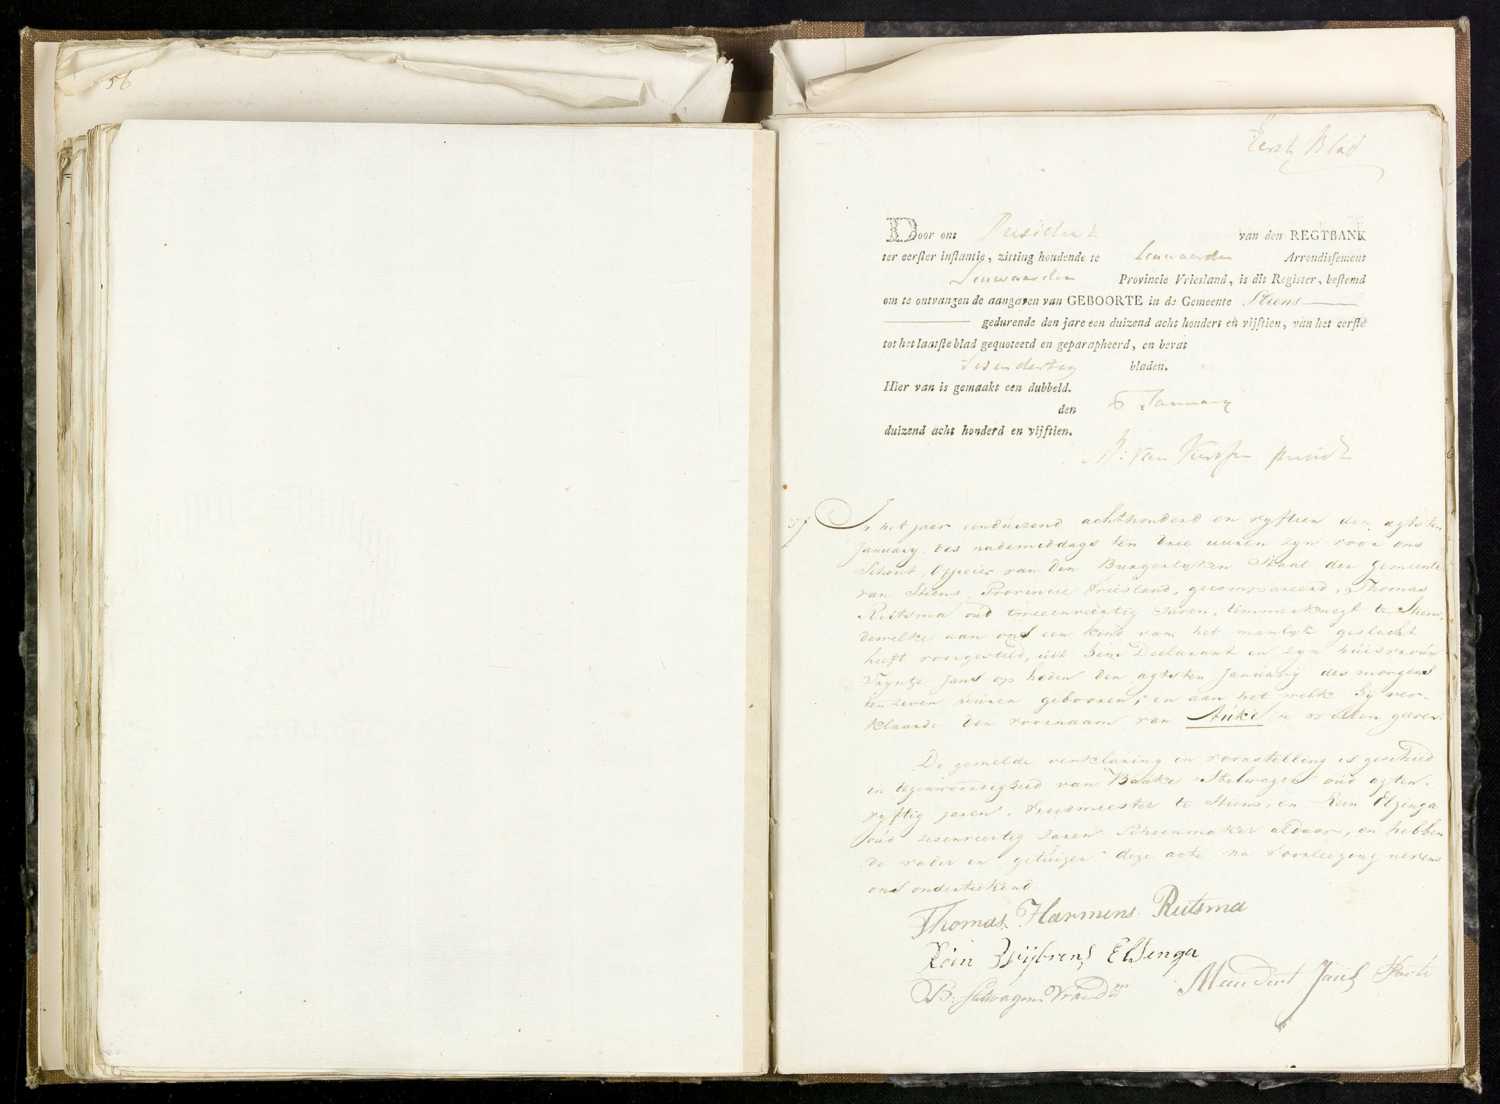 56
Eerste Blad
Door ons President van den REGTBANK
ter eerster instantie, zitting houdende te Leuwaarden Arrondissement
Leuwaarden Provincie Vriesland, is dit Register, bestemd
om te ontvangen de aangaven van GEBOORTE in de Gemeente Stiens
gedurende den jare een duizend acht hondert en vijftien, van het eerste
tot het laatste blad gequoteerd en geparapheerd, en bevat
Sesendertig bladen.
Hier van is gemaakt een dubbeld.
den 6 January
duizend acht honderd en vijftien.
In het jaar eenduizend achthonderd en vyftien den agtsten
January des nademiddags ten drie uuren zyn voor ons
Schout, Officier van den Burgerlyken Staat der gemeente
van Stiens, Provincie Vriesland, gecompareerd, Thomas
Ruitsma oud tweeenveertig Jaren, timmerknegt te Stiens,
dewelke aan ons een kind van het manlyk geslacht
heeft voorgesteld, uit hem Declarant en zyn huisvrouw
Tryntje Jans op heden den agtsten January des morgens
ten zeven uuren gebooren, en aan het welk hy ver-
klaarde den voornaam van Auke te willen geven.
De gemelde verklaring en voorstelling is geschied
in tegenwoordigheid van Bauke Stelwagen oud agten-
vyftig jaren, te Stiens, en Rein Elzenga
oud sesenveertig Jaren Schoenmaker aldaar, en hebben
de vader en getuigen deze acte na voorleezing nevens
ons ondertekend
Thomas Harmens Ruitsma
Rein Wijbrens Elsenga
B. Stelwagen Meindert Jans